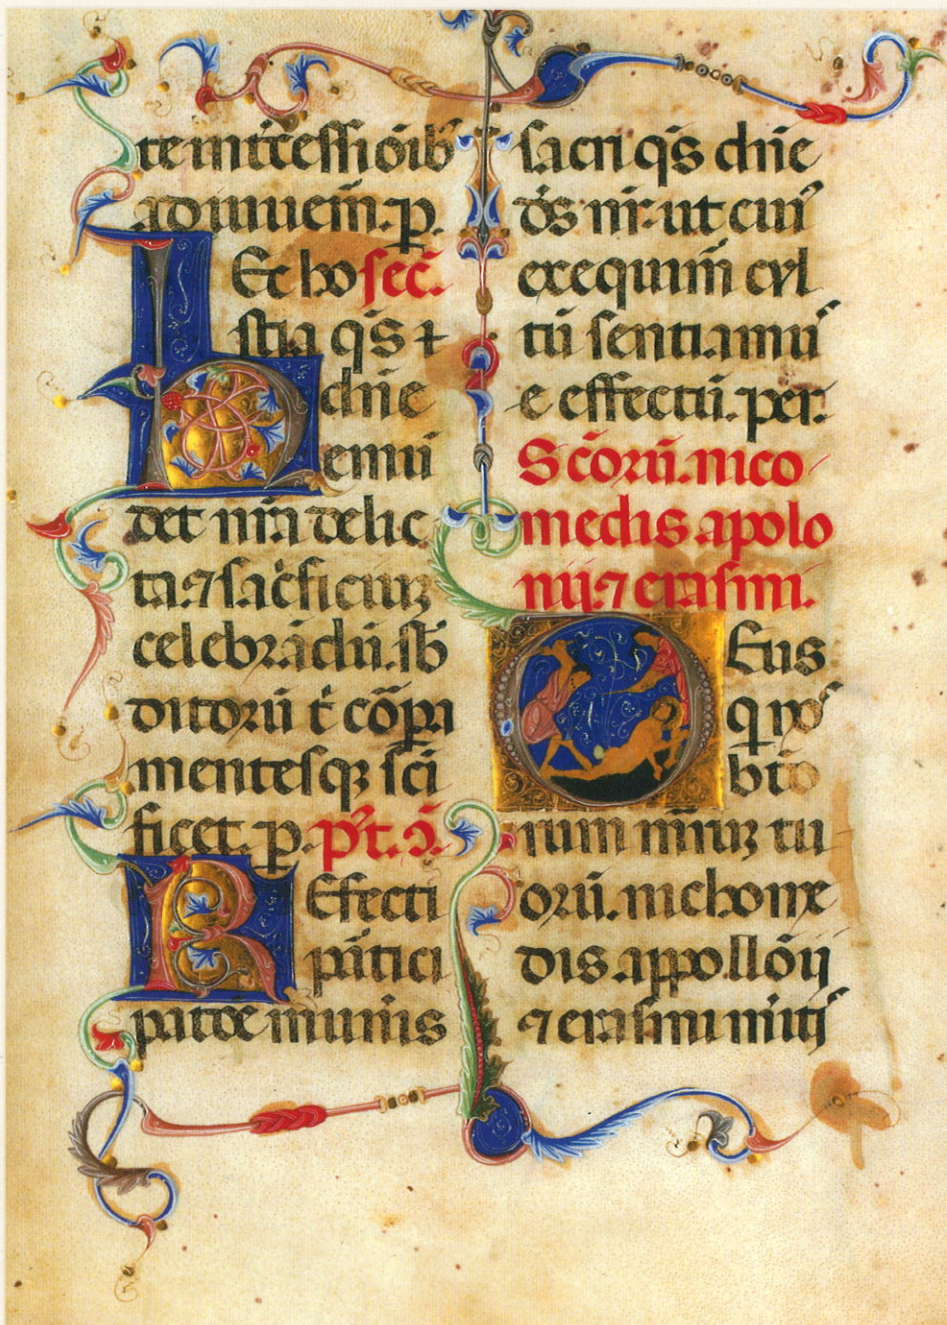 te int͛cessiōib᷒
adiuuem̄. p̱.
Ec ho sec̄.
stia qs̄ +
dn̄e
emū
det nr̄a delic
ta. ⁊ sac͛ficiūꝫ
celebrādū. sb̄
ditorū t͛ cōꝑa
mentesqꝫ sc̄i
ficet. p̱. p᷒t. ↄ̄.
R Efecti
ꝑātici
patōe muneris
sacri qs̄ dn̄e
ds̄ nr̄. ut cui᷒
exequim̄ cul
tū sentiamu᷒
e effectū. per.
Scōrū. nico
medis apolo
nij. ⁊ erasmi.
Eus
q̱ nos
btō
rum mr̄iuꝫ tu
orū. nichome
dis appollōij
⁊ erasmi m̄itis